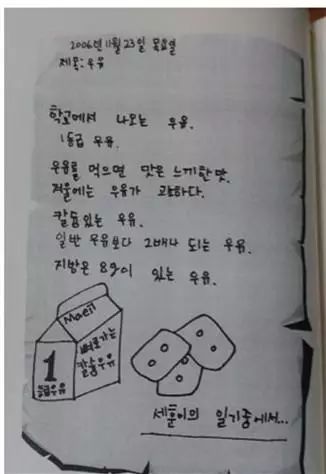 2006년 11월 23일 목요일
제목: 우유
학교에서 나오는 우유.
1등급 우유.
우유를 먹으면 맛은 느끼한맛.
겨울에는 우유가 과하다.
칼슘있는 우유.
일반 우유보다 2배나 되는 우유.
지방은 8g이 있는 우유.
Maeil
뼈로가는
칼슘우유
1
등급우유
세훈이의 일기중에서...